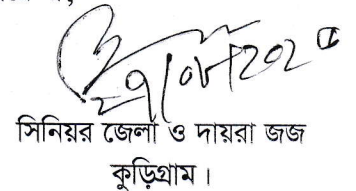 সিনিয়র জেলা ও দায়রা জজ
কুড়িগ্রাম।